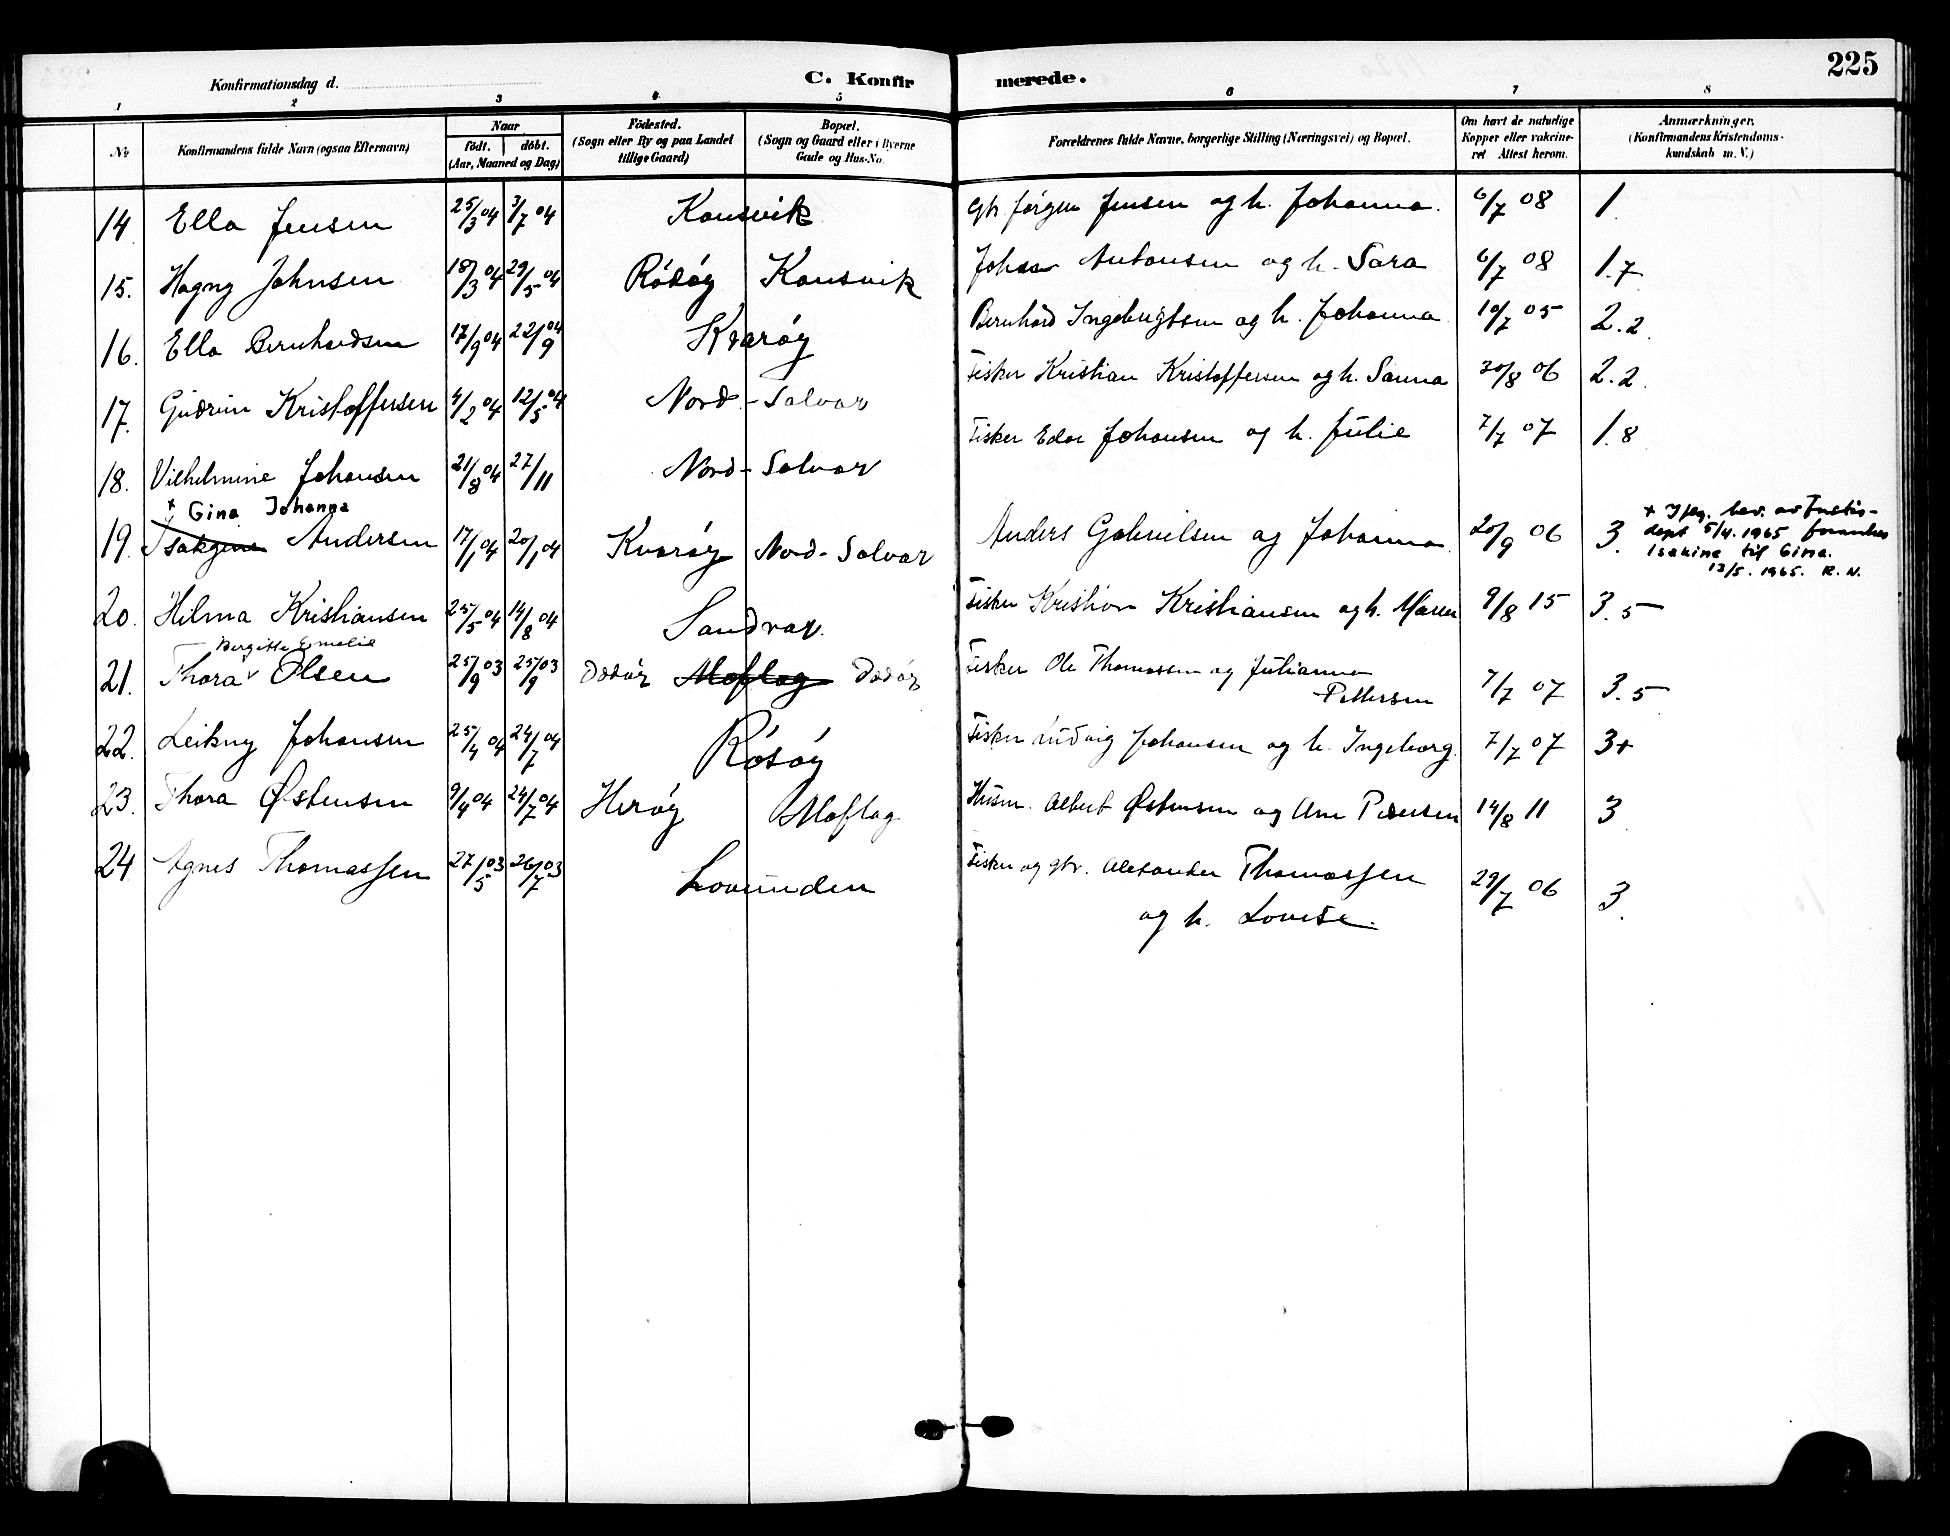 225
Konfirmationsdag d.
C. Konfirmerede.
1 2 3 4 5 6 7 8
No
Konfirmandens fulde Navn (ogsaa Efternavn)
Naar
født. døbt.
(Aar, Maaned og Dag)
Fødested.
(Sogn eller By og paa Landet
tillige Gaard)
Bopæl.
(Sogn og Gaard eller i Byerne
Gade og Hus-No.
Forældrenes fulde Navne, borgerlige Stilling (Næringsvei) og Bopæl.
Om havt de naturlige
Kopper eller vakcine-
ret Attest herom.
Anmærkninger.
(Konfirmandens Kristendoms-
kundskab m. V.)
14 Ella Jensen 25/3 04 3/7 04 Konsvik Gbr. Jørgen Jensen og h. Johanna. 6/7 08 1.
15. Hagny Johnsen 18/3 04 29/5 04 Rødøy Konsvik Johan Antonsen og h. Sara 6/7 08 1.7
16. Ella Bernhardsen 17/9 04 22/9 04 Kvarøy Bernhard Ingebrigtsen og h. Johanna 10/7 05 2.2
17. Gudrun Kristoffersen 4/2 04 12/5 04 Nord-Solvær Fisker Kristian Kristoffersen og h. Sanna 30/8 06 2.2
18. Vilhelmine Johansen 21/8 04 27/11 Nord-Solvær Fisker Edor Johansen og h. Julie 7/7 07 1.8
+ Gina Johanna
19. Isakgine Andersen 17/1 04 20/1 04 Kvarøy Nord-Solvær Anders Gabrielsen og Johanna 20/9 06 3.
+ Iflg. bev. av Justis-
dept 5/4. 1965 forandres
Isakine til Gina.
13/5. 1965. R. N.
20. Hilma Kristiansen 25/5 04 14/8 04 Sandvær. Fisker Kristian Kristiansen og h. Maren 9/8 15 3.5
Bergitte Emelie
21. Thora Olsen 25/9 03 25/9 03 Dødøy Moflag Dødøy Fisker Ole Thomassen og Julianna
Pettersen 7/7 07 3.5
22. Leikny Johansen 25/4 04 24/7 04 Røsøy Fisker Ludvig Johansen og h. Ingeborg. 7/7 07 3+
23. Thora Østensen 9/4 04 24/7 04 Herøy Moflag Husm. Albert Østensen og Ane Pedersen 14/8 11 3
24 Agnes Thomassen 27/5 03 26/7 03 Lovunden Fisker og gbr. Alexander Thomassen
og h. Lovise. 29/7 06 3.